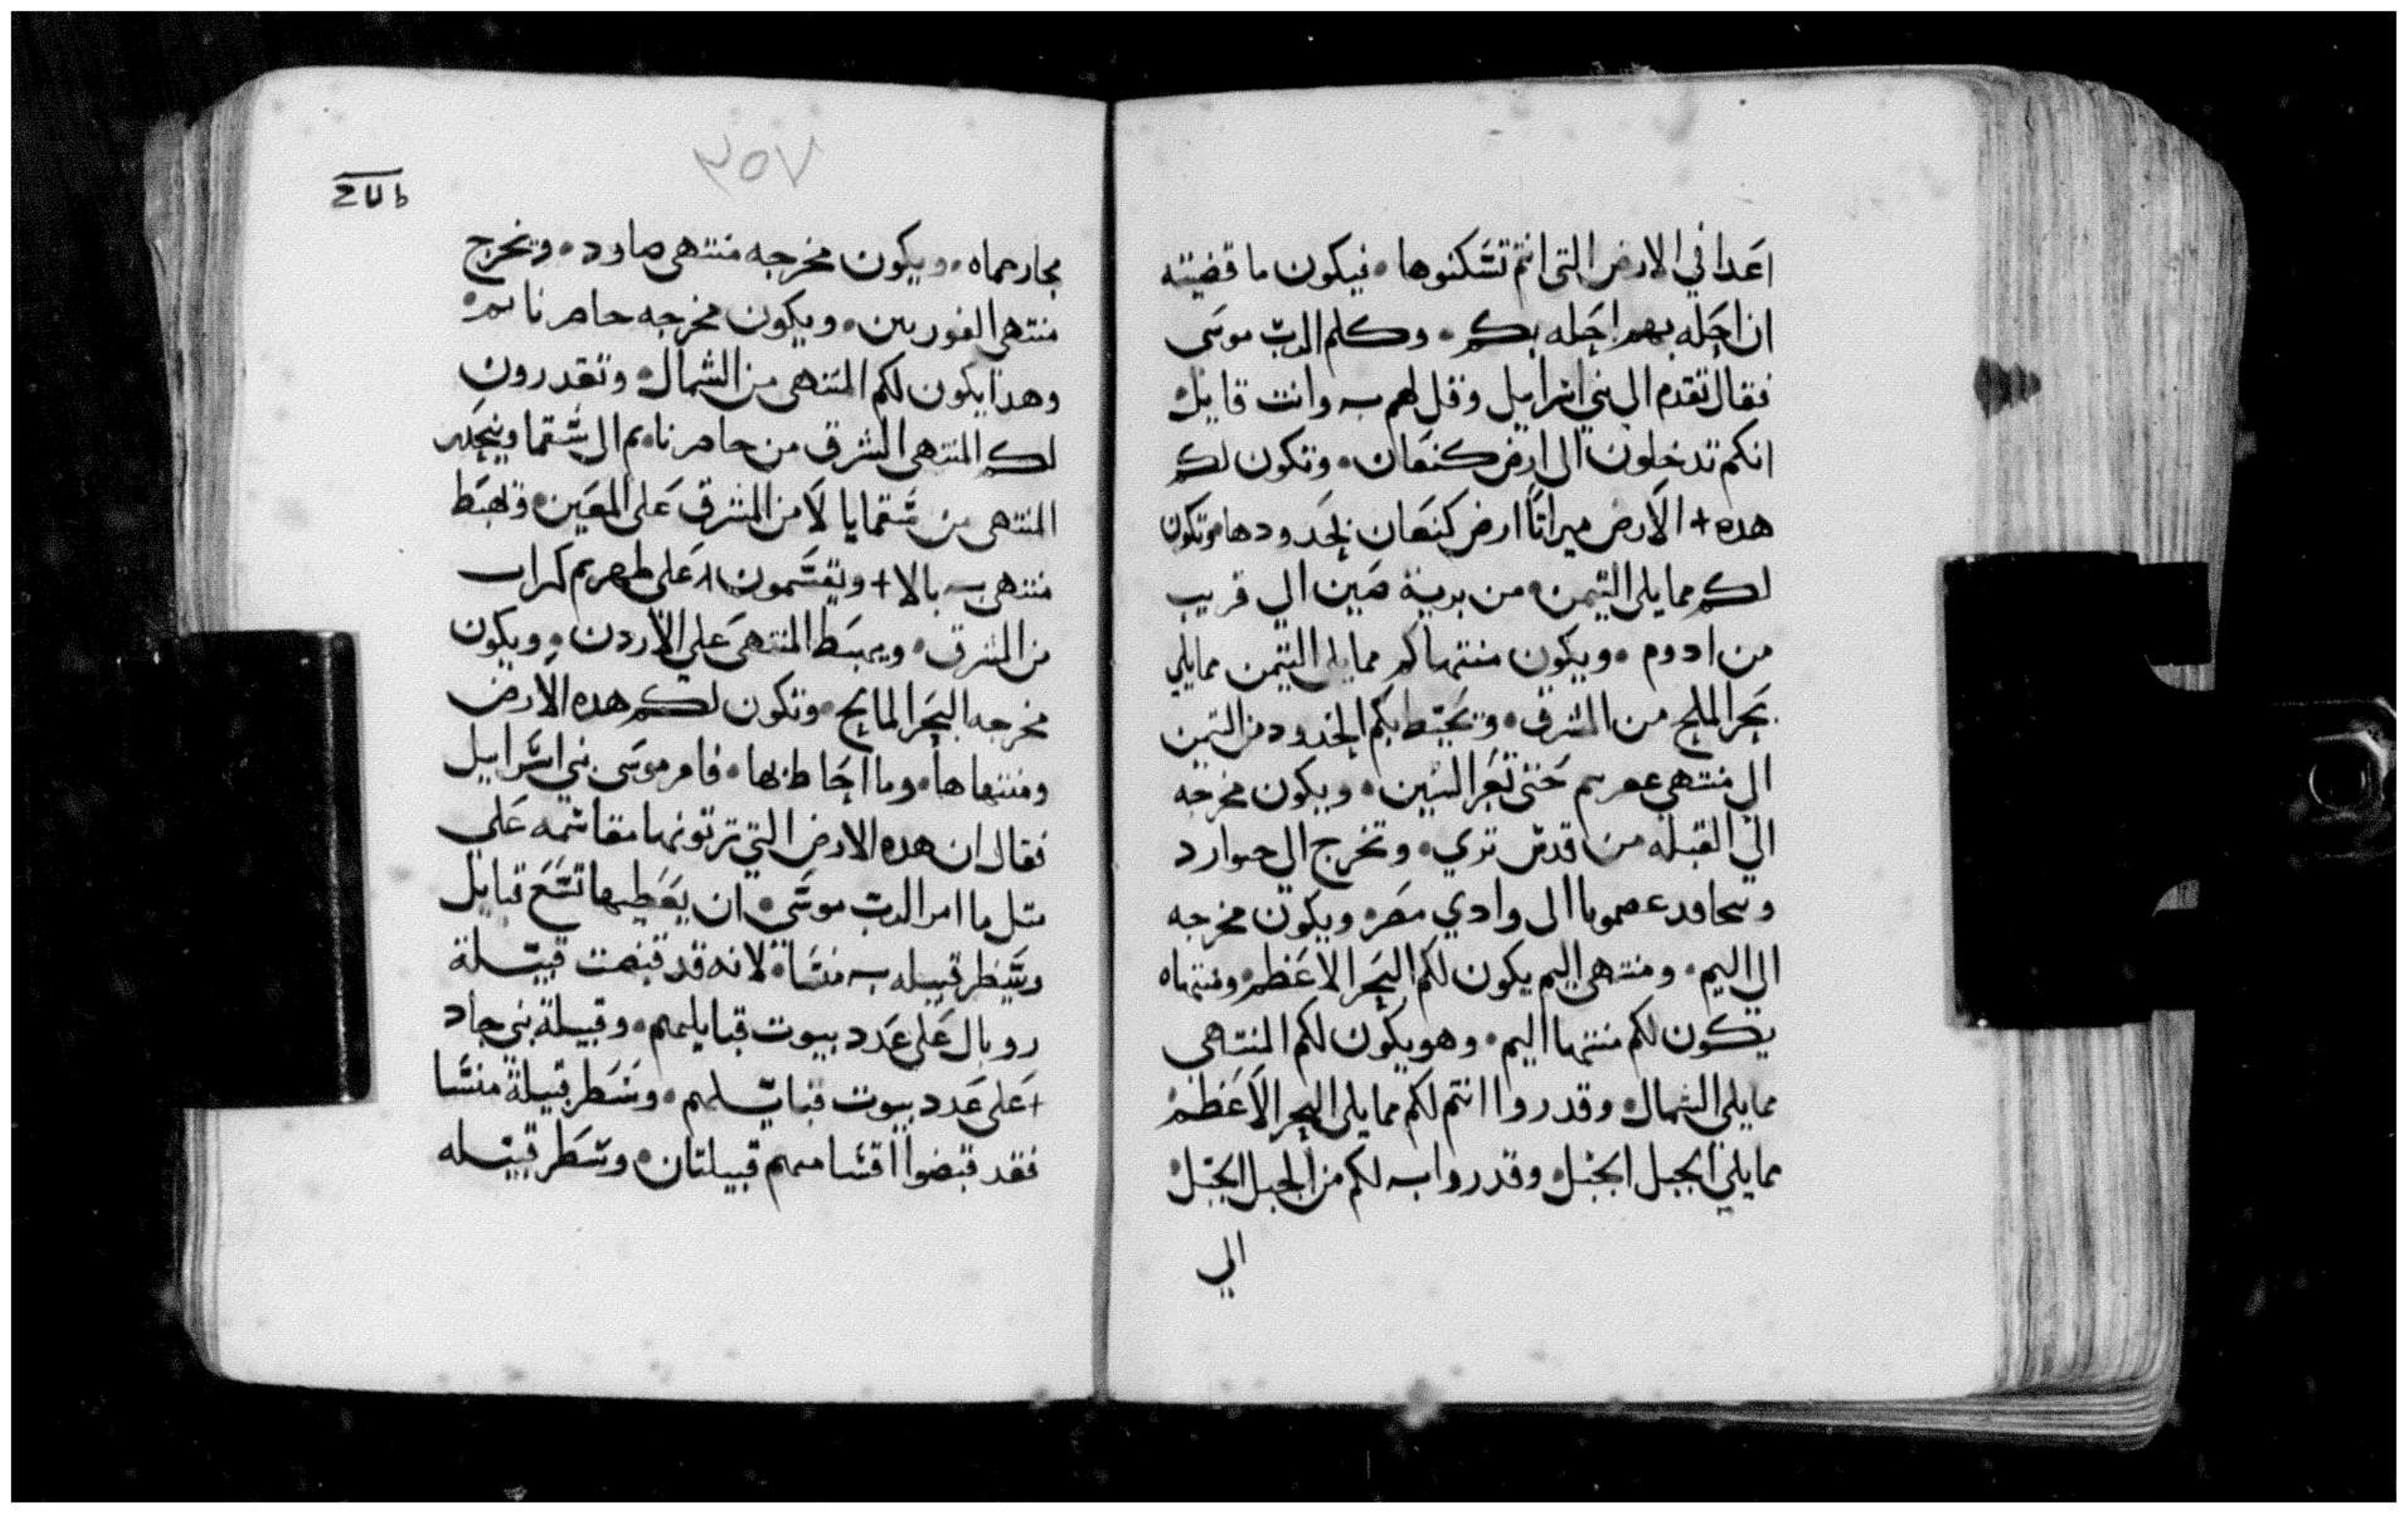 اعدا في الارض التي انتم تسكنوها • فيكون ما قضيته
ان احله بهم احله بكم • وكلم الرب موسى
فقال تقدم الى بني اسراييل وقل لهم وانت قايل
انكم تدخلون الى ارض كنعان • وتكون لكم
هده + الارض ميراثا ارض كنعان بحدودها • وتكون
لكم مما يلي التيمن • من برية صين الى قريب
من ادوم • ويكون منتهاكم مما يلي التيمن مما يلي
بحر الملح من المشرق • وتحيط بكم الحدود من التيمن
الى منتهى حتى • ويكون مخرجه
الى القبله من قدس • وتخرج الى
الى وادي مصر • ويكون مخرجه
الى اليم • ومنتهى اليم يكون لكم البحر الاعظم • ومنتهاه
يكون لكم منتها اليم • وهو يكون لكم المنتهى
مما يلي الشمال • وقدروا انتم لكم مما يلي البحر الاعظم
مما يلي الجبل الجبل • وقدروا به لكم من الجبل الجبل
الي
٣٥٧
مجار حماه • ويكون مخرجه منتهى صاود • وتخرج
منتهى • ويكون مخرجه
وهدا يكون لكم المنتهى من الشمال • وتقدرون
لكم المنتهى الشرق من الى
المنتهى من من المشرق على المعين • وتهبط
منتهى + وتقسمون على
من المشرق • ويهبط المنتهى على الاردن • ويكون
مخرجه البحر المالح • وتكون لكم هده الارض
ومنتهاها • وما احاط بها • فامر موسى بني اسراييل
فقال ان هده الارض التي ترتونها مقاسمه على
متل ما امر الرب موسى • ان يعطيها تسع قبايل
وشطر قبيله منسا • لانه قد قبضت قبيلة
روبال على عدد بيوت قبايلهم • وقبيلة بني جاد
+ على عدد بيوت قبايلهم • وشطر قبيلة منسا
فقد قبضوا اقسامهم قبيلتان • وشطر قبيله